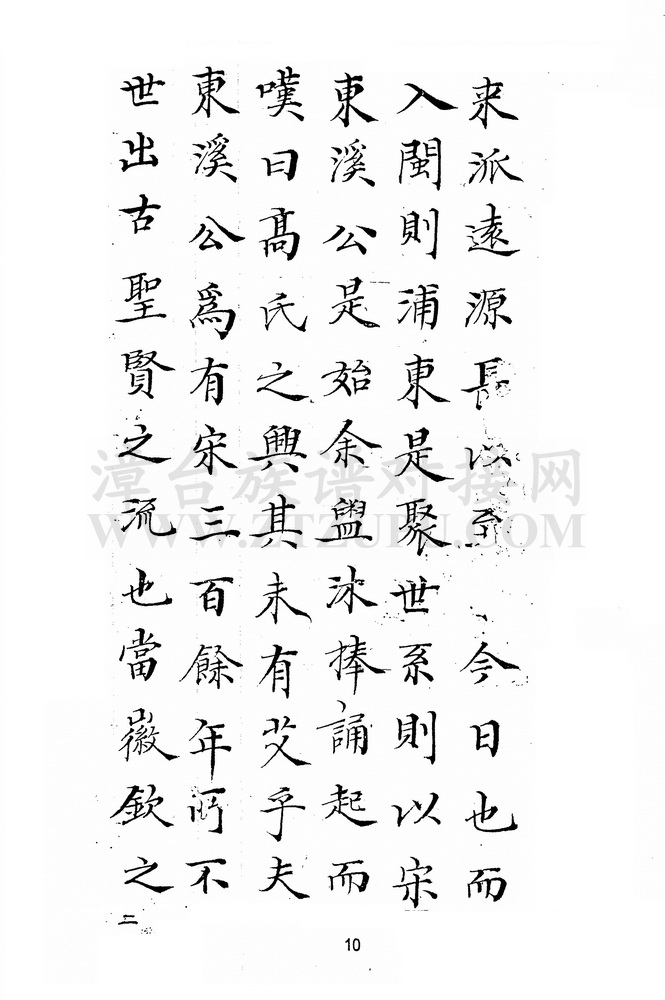 来派遠源長以至于今日也而
入閩則浦東是聚世系則以宋
東溪公是始余盥沐捧誦起而
嘆曰髙氏之興其未有艾乎夫
東溪公爲有宋三百餘年所不
世出古聖賢之流也當徽欽之
二
10
漳台族谱对接网
WWW.ZTZUPU.COM